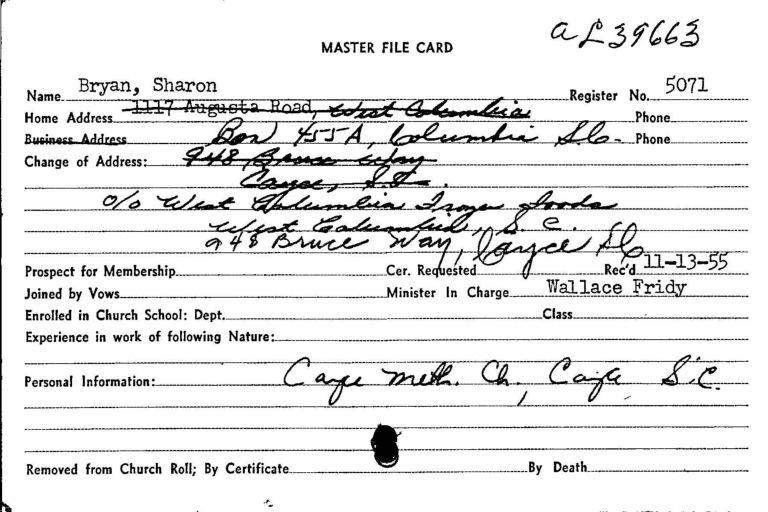 aL39663
MASTER FILE CARD
Name Bryan, Sharon Register No. 5071
Home Address 1117 Augusta Road, West Columbia Phone
Business Address Box 455A, Columbia S.C. Phone
Change of Address: 948 Bruce Way
Cayce, S.C.
c/o West Columbia Frozen Foods
West Columbia, S. C.
948 Bruce Way, Cayce SC
Prospect for Membership Cer. Requested Rec'd 11-13-55
Joined by Vows Minister In Charge Wallace Fridy
Enrolled in Church School: Dept. Class
Experience in work of following Nature:
Personal Information: Cayce Meth. Ch., Cayce S.C.
Removed from Church Roll; By Certificate By Death